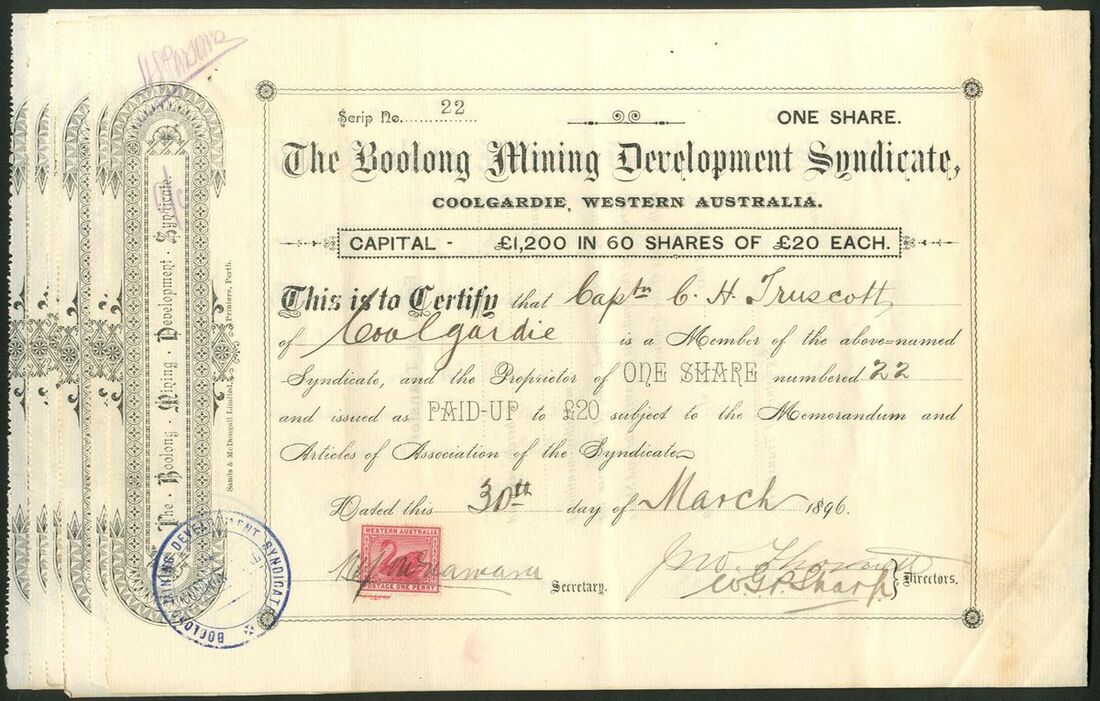 Scrip No. 22
ONE SHARE.
The Boolong Mining Development Syndicate,
COOLGARDIE, WESTERN AUSTRALIA.
CAPITAL - £1,200 IN 60 SHARES OF £20 EACH.
This is to Certify that Captn C. H. Truscott
of Coolgardie is a Member of the above-named
Syndicate, and the Proprietor of ONE SHARE numbered 22
and issued as PAID-UP to £20 subject to the Memorandum and
Articles of Association of the Syndicate
Dated this 30th day of March 1896.
WESTERN AUSTRALIA
POSTAGE ONE PENNY
Secretary.
W. G. P. Sharp
Directors.
The · Boolong · Mining · Development · Syndicate.
Sands & McDougall Limited, Printers, Perth.
BOOLONG MINING DEVELOPMENT SYNDICATE